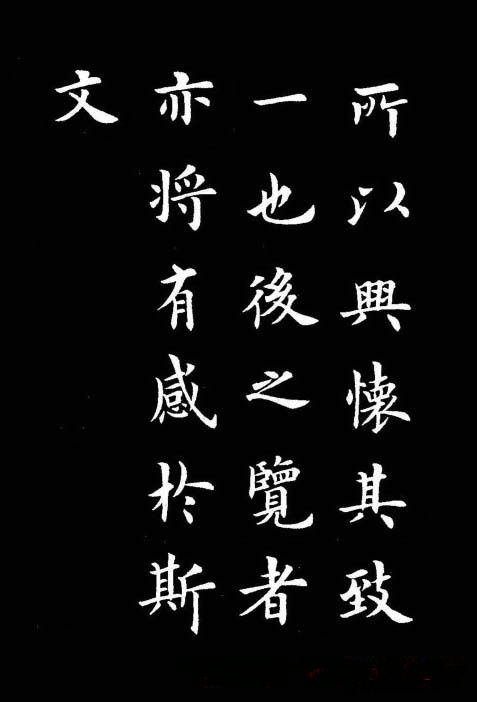 所以興懷其致
一也後之覽者
亦將有感於斯
文